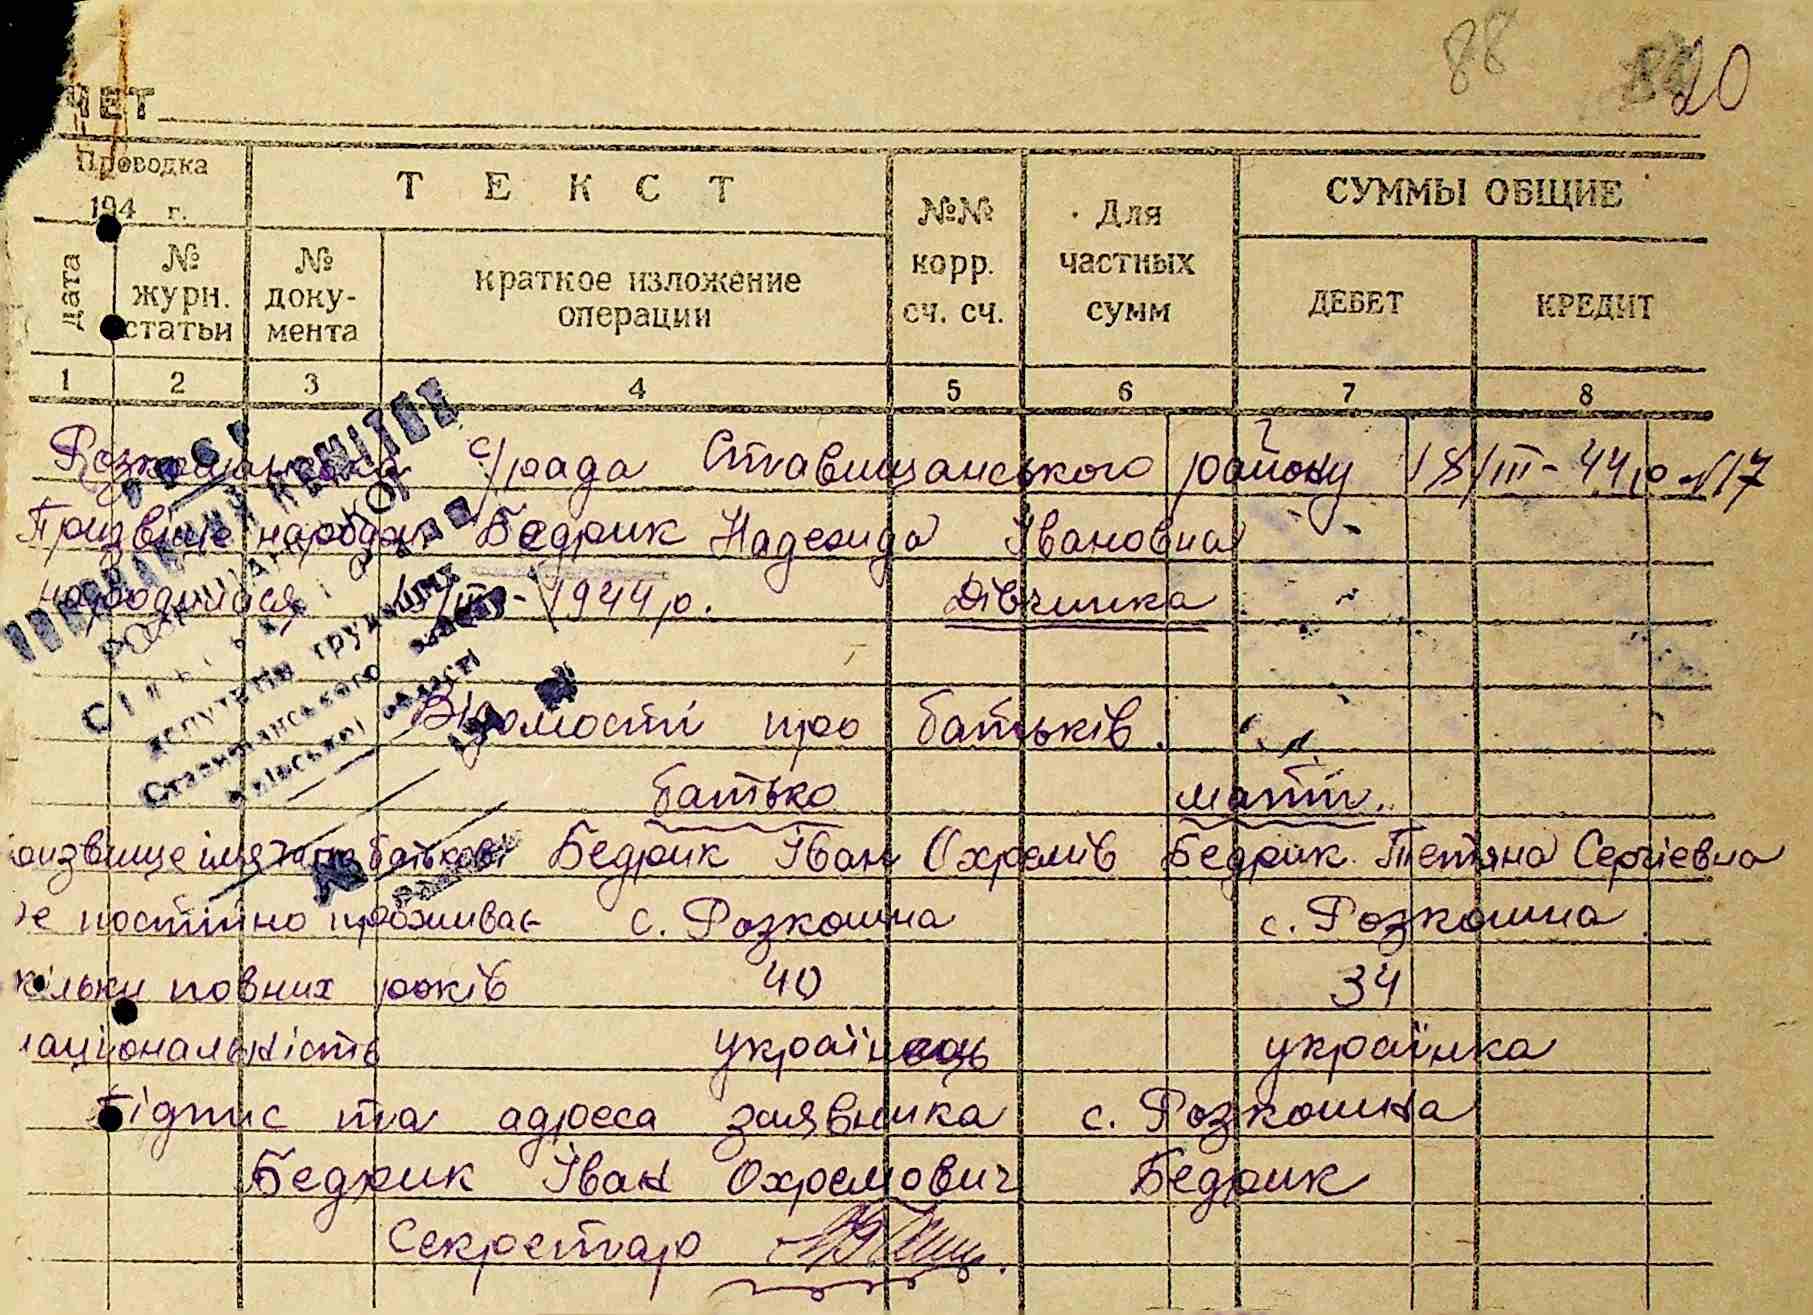 88 20
ЧЕТ
Проводка
194 г.
ТЕКСТ
№№ корр. сч. сч.
Для частных сумм
СУММЫ ОБЩИЕ
Дата
№ журн. статьи
№ доку-мента
краткое изложение операции
ДЕБЕТ
КРЕДИТ
1 2 3 4 5 6 7 8
Розкошанська с/рада Ставищанського району 18/III-44 р №17
Призвіще народж Бедрик Надежида Івановна
народилася /III-1944 р. Дівчинка
УРСР
ВИКОНАВЧИЙ КОМІТЕТ
Сільської Ради
депутатів трудящих
Ставищанського
Київської області
Відомості про батьків.
батько мати.
ризвище імя та по батькові Бедрик Іван Охремів Бедрик Тетяна Сергіевна
де постійно проживає с. Розкошна с. Розкошна
кільки повних років 40 34
національність українець українка
Підпис та адреса заявника с. Розкошна
Бедрик Іван Охремович Бедрик
Секретар